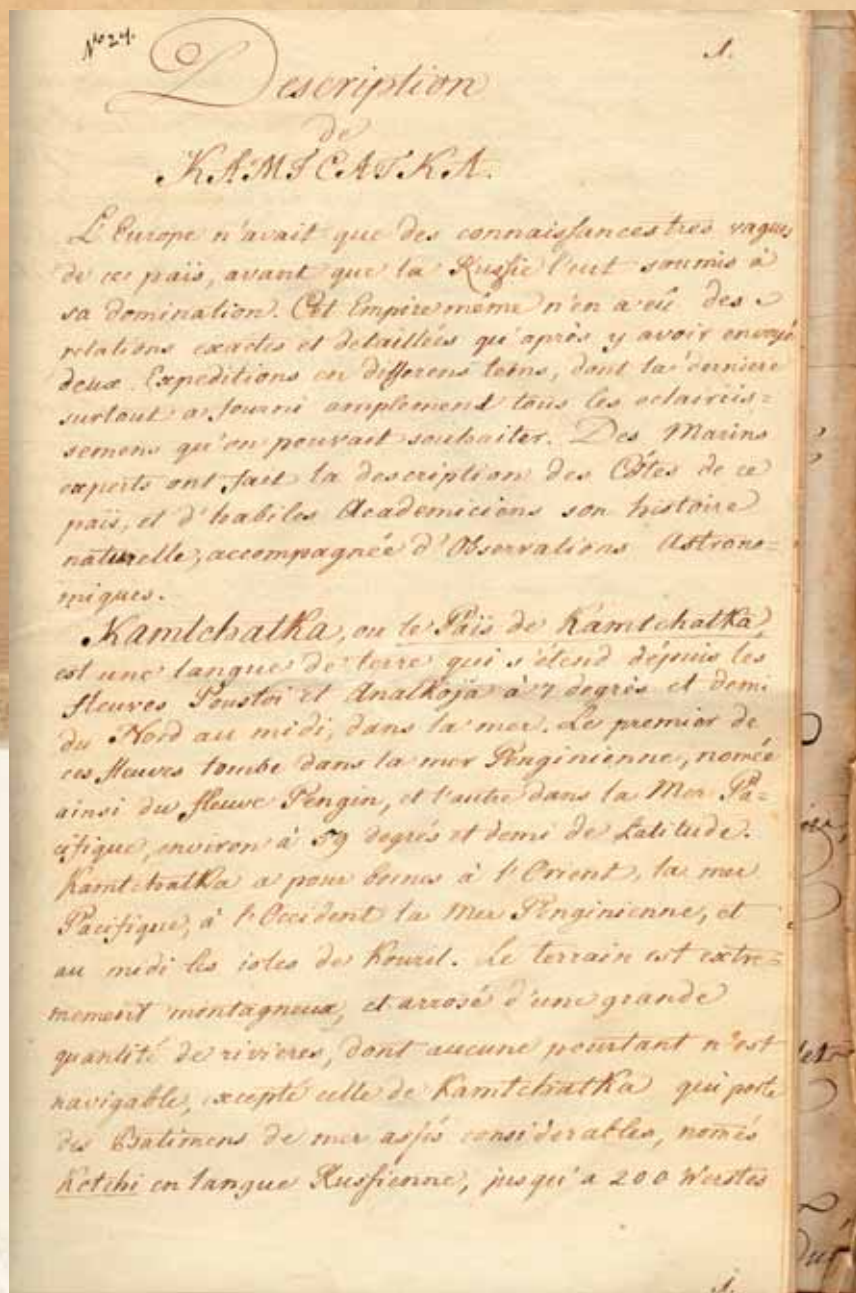 No 24.
1.
Description
de
KAMTCATKA.
L'Europe n'avait que des connaissances tres vagues
de ce païs, avant que la Russie l'eut soumis à
sa domination. Cet Empire même n'en a eû des
relations exactes et detaillées qu'après y avoir envoyé
deux Expeditions en differens tems, dont la derniere
surtout a fourni amplement tous les eclaircis=
semens qu'on pouvait souhaiter. Des Marins
experts ont fait la description des Côtes de ce
païs, et d'habiles Academiciens son histoire
naturelle, accompagnée d'Observations Astrono=
miques.
Kamtchatka, ou le Païs de Kamtchatka,
est une langue de terre qui s'étend dépuis les
fleuves Poustoi et Analkoja à 7 degrés et demi
du Nord au midi, dans la mer. Le premier de
ces fleuves tombe dans la mer Penginienne, nomée
ainsi du fleuve Pengin, et l'autre dans la Mer Pa=
cifique, environ à 59 degrés et demi de Latitude.
Kamtchatka a pour bornes à l'Orient, la mer
Pacifique, à l'Occident la Mer Penginienne, et
au midi les isles de Kouril. Le terrain est extre=
mement montagneux, et arrosé d'une grande
quantité de rivieres, dont aucune pourtant n'est
navigable, excepté celle de Kamtchatka qui porte
des Batimens de mer assés considerables, només
Kotchi en langue Russienne, jusqu'a 200 Werstes
1.